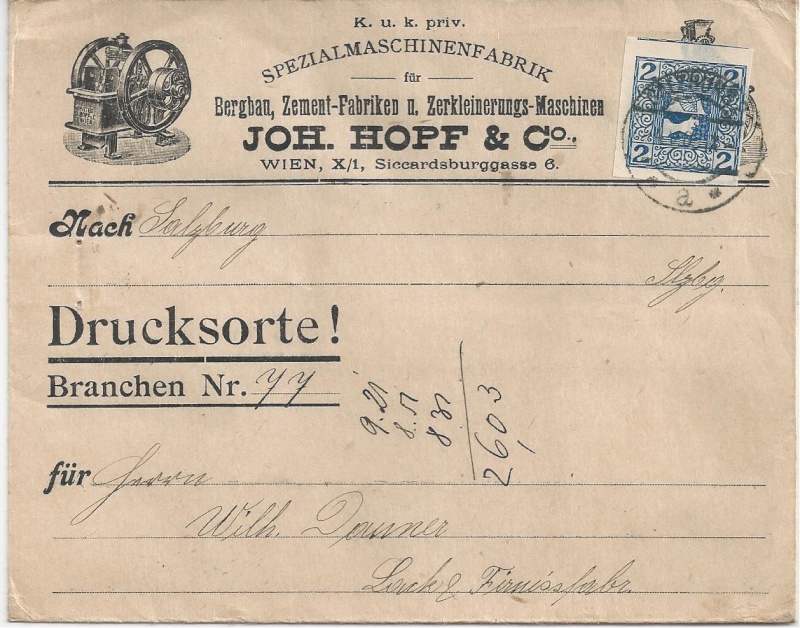 K. u. k. priv.
SPEZIALMASCHINENFABRIK
für
Bergbau, Zement-Fabriken u. Zerkleinerungs-Maschinen
JOH. HOPF & Co.,
WIEN, X/1, Siccardsburggasse 6.
2 2
2 2
a
Nach Salzburg
Slzbg.
Drucksorte!
Branchen Nr. 77
9.21
8.51
8 31
2603
für Herrn
Wilh. Danner
Lack & Firnissfabr.